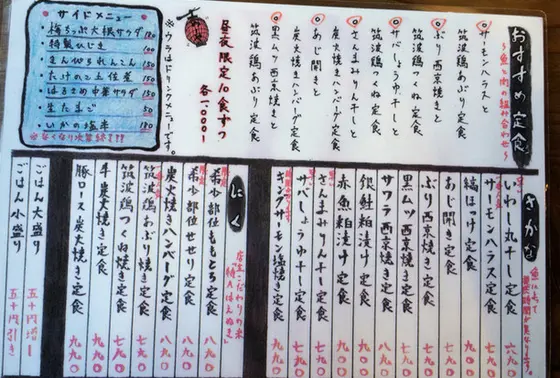 おすすめ定食
～魚と肉の組み合わせ～
サーモンハラスと
筑波鶏あぶり定食
ぶり西京焼きと
筑波鶏つくね定食
サバしょうゆ干しと
筑波鶏あぶり定食
さんまみりん干しと
炭火焼きハンバーグ定食
あじ開きと
炭火焼きハンバーグ定食
黒ムツ西京焼きと
筑波鶏あぶり定食
昼夜限定10食ずつ
各1.000-
※ウラはドリンクメニューです。
サイドメニュー
梅ちっぷ大根サラダ 150
特製ひじき 100
きんぴられんこん 150
たけのこ土佐煮 150
はるさめ中華サラダ 150
生たまご 50
いかの塩辛 180
※なくなり次第終了!!
さかな
魚によって
焼き時間が異なります。
いわし丸干し定食 六九〇
サーモンハラス定食
縞ほっけ定食
あじ開き定食
ぶり西京焼き定食
黒ムツ西京焼き定食
サワラ西京焼き定食
銀鮭粕漬け定食
赤魚粕漬け定食
さんまみりん干し定食
サバしょうゆ干し定食
キングサーモン塩焼き定食
にく
店主こだわりの米
特Aはえぬき
希少部位ももとろ定食 八九〇
希少部位せせり定食 八九〇
炭火焼きハンバーグ定食 八九〇
筑波鶏つくね焼き定食 七九〇
筑波鶏あぶり焼き定食 七九〇
牛炭火焼き定食 九九〇
豚ロース炭火焼き定食 九九〇
ごはん大盛り 五十円増し
ごはん小盛り 五十円引き